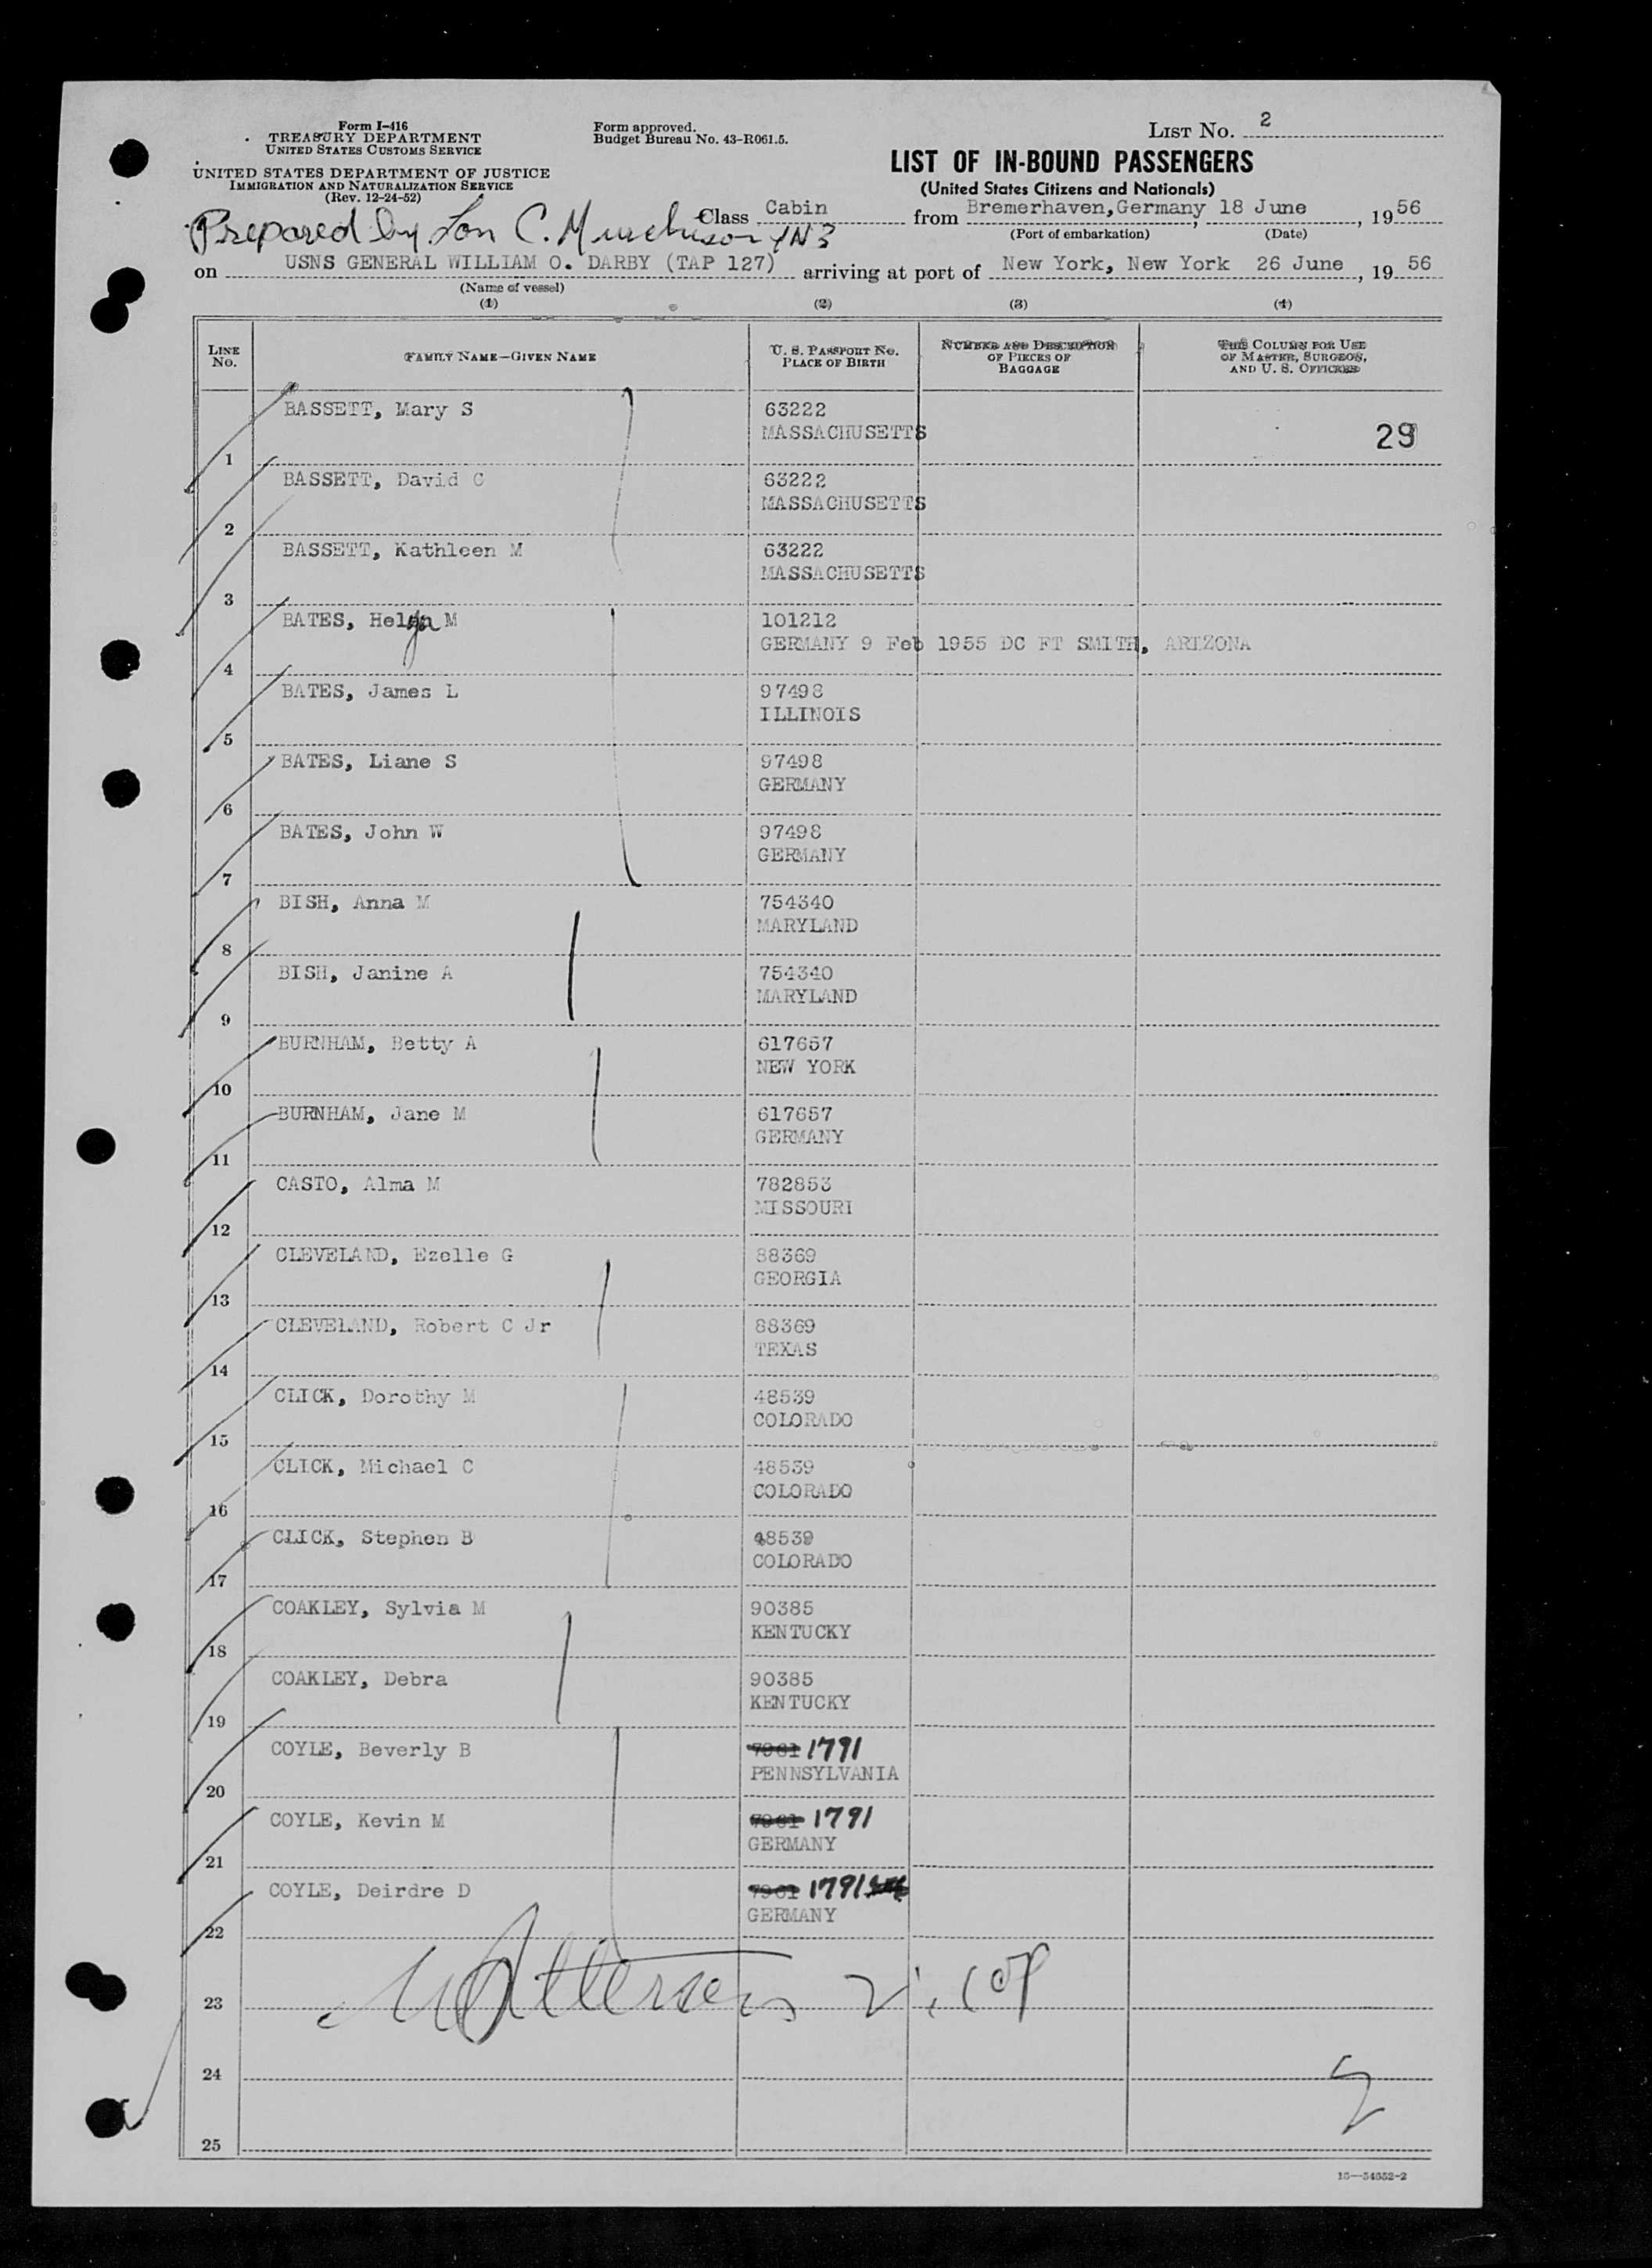 Form I-416
TREASURY DEPARTMENT
UNITED STATES CUSTOMS SERVICE
UNITED STATES DEPARTMENT OF JUSTICE
IMMIGRATION AND NATURALIZATION SERVICE
(Rev. 12-24-52)
Form approved.
Budget Bureau No. 43-R061.5.
LIST No. 2
LIST OF IN-BOUND PASSENGERS
(United States Citizens and Nationals)
Prepared by Lon C. Murchison YN3
Class Cabin from Bremerhaven, Germany, 18 June, 1956
(Port of embarkation) (Date)
on USNS GENERAL WILLIAM O. DARBY (TAP 127) arriving at port of New York, New York 26 June, 1956
(Name of vessel)
(1) (2) (3) (4)
LINE No. FAMILY NAME—GIVEN NAME U. S. PASSPORT No. PLACE OF BIRTH NUMBER AND DESCRIPTION OF PIECES OF BAGGAGE THIS COLUMN FOR USE OF MASTER, SURGEON, AND U. S. OFFICERS
BASSETT, Mary S 63222
MASSACHUSETTS 29
1
BASSETT, David C 63222
MASSACHUSETTS
2
BASSETT, Kathleen M 63222
MASSACHUSETTS
3
BATES, Helga M 101212
GERMANY 9 Feb 1955 DC FT SMITH, ARIZONA
4
BATES, James L 97498
ILLINOIS
5
BATES, Liane S 97498
GERMANY
6
BATES, John W 97498
GERMANY
7
BISH, Anna M 754340
MARYLAND
8
BISH, Janine A 754340
MARYLAND
9
BURNHAM, Betty A 617657
NEW YORK
10
BURNHAM, Jane M 617657
GERMANY
11
CASTO, Alma M 782853
MISSOURI
12
CLEVELAND, Ezelle G 88369
GEORGIA
13
CLEVELAND, Robert C Jr 88369
TEXAS
14
CLICK, Dorothy M 48539
COLORADO
15
CLICK, Michael C 48539
COLORADO
16
CLICK, Stephen B 48539
COLORADO
17
COAKLEY, Sylvia M 90385
KENTUCKY
18
COAKLEY, Debra 90385
KENTUCKY
19
COYLE, Beverly B 7961 1791
PENNSYLVANIA
20
COYLE, Kevin M 7961 1791
GERMANY
21
COYLE, Deirdre D 7961 1791
GERMANY
22
23
24
25
16—54652-2